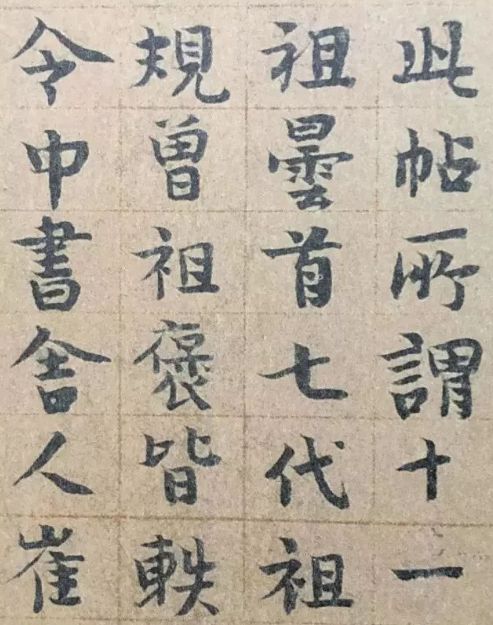 此帖所謂十一
祖曇首七代祖
規曾祖褒皆軼
令中書舍人崔